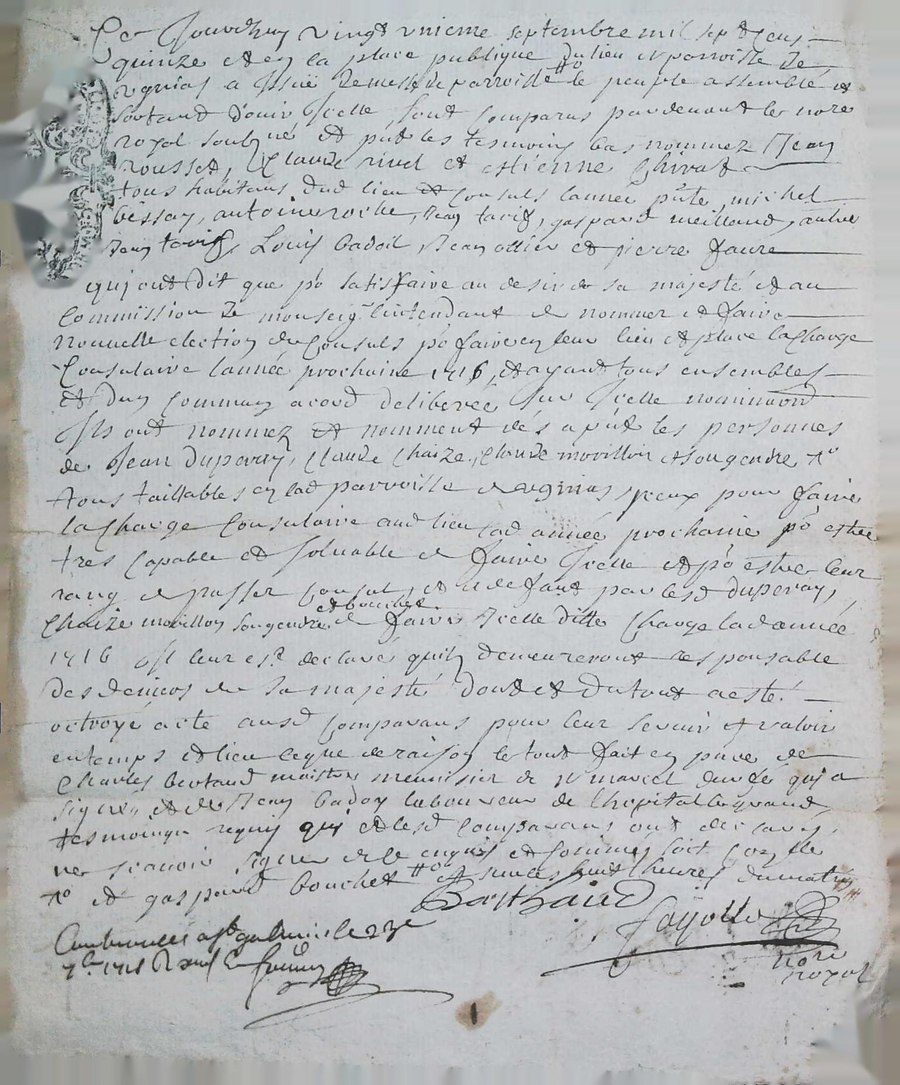 Ce Jourdhuy vingt unieme septembre mil sept Cens
quinze et en la place publique du lieu et parroisse de
regnias a Issüe de messe de parroisse le peuple assemblé et
sortand d'ouir Icelle sont comparus pardevant le nore
royal soubzne et pnt les tesmoins bas nommez Jean
rousset, Claude rivel et estienne Chirat
tous habitans dud lieu et Consuls lannée pnte, michel
bessay, antoine roche, Jean tarif, gaspard meilland, autre
Jean tarif, Louis badoil Jean ollier et pierre faure
qui ont dit que po satisfaire au desir de sa majesté et au
Commission de monseigr lintendant de nommer et faire
nouvelle election de Consuls po faire en leur lieu et place la Charge
Consulaire lannée prochaine 1716, et ayant tous ensembles
et dun Commun acord deliberée sur Icelle nominaon
Ils ont nommez et nomment dés a pnt les personnes
de Jean duperay, Claude Chaize, Claude movillon et sougendre ⁊o
tous taillables en lad parroisse de regnias Iceux pour faire
la Charge Consulaire aud lieu lad année prochaine po estre
tres Capable et soluable de faire Icelle et po estre leur
rang de passer Consul, et a defaut par lesd duperay,
Chaize movillon sougendre et bouchet de faire Icelle ditte Charge lad année
1716 Ils leur est declaré quils demeureront responsable
des deniers de sa majesté dont et du tout a esté
octroyé acte ausd Comparans pour leur servir et valoir
en temps et lieu ce que de raison le tout fait en pnce de
Charles bertaud maistre meunisier de st marcel durfé qui a
signé, et de Jean badoy laboureur de lhopital le grand
tesmoings requis qui et lesd Comparans ont declarés
ne scavoir signer de ce enquis et sommes soit Con lle
⁊o et gaspard bouchet et sur les huit heures du matin
Barthaud
fayolle
nore
royal
Controllé a st galmier le 23e
7bre 1715 R